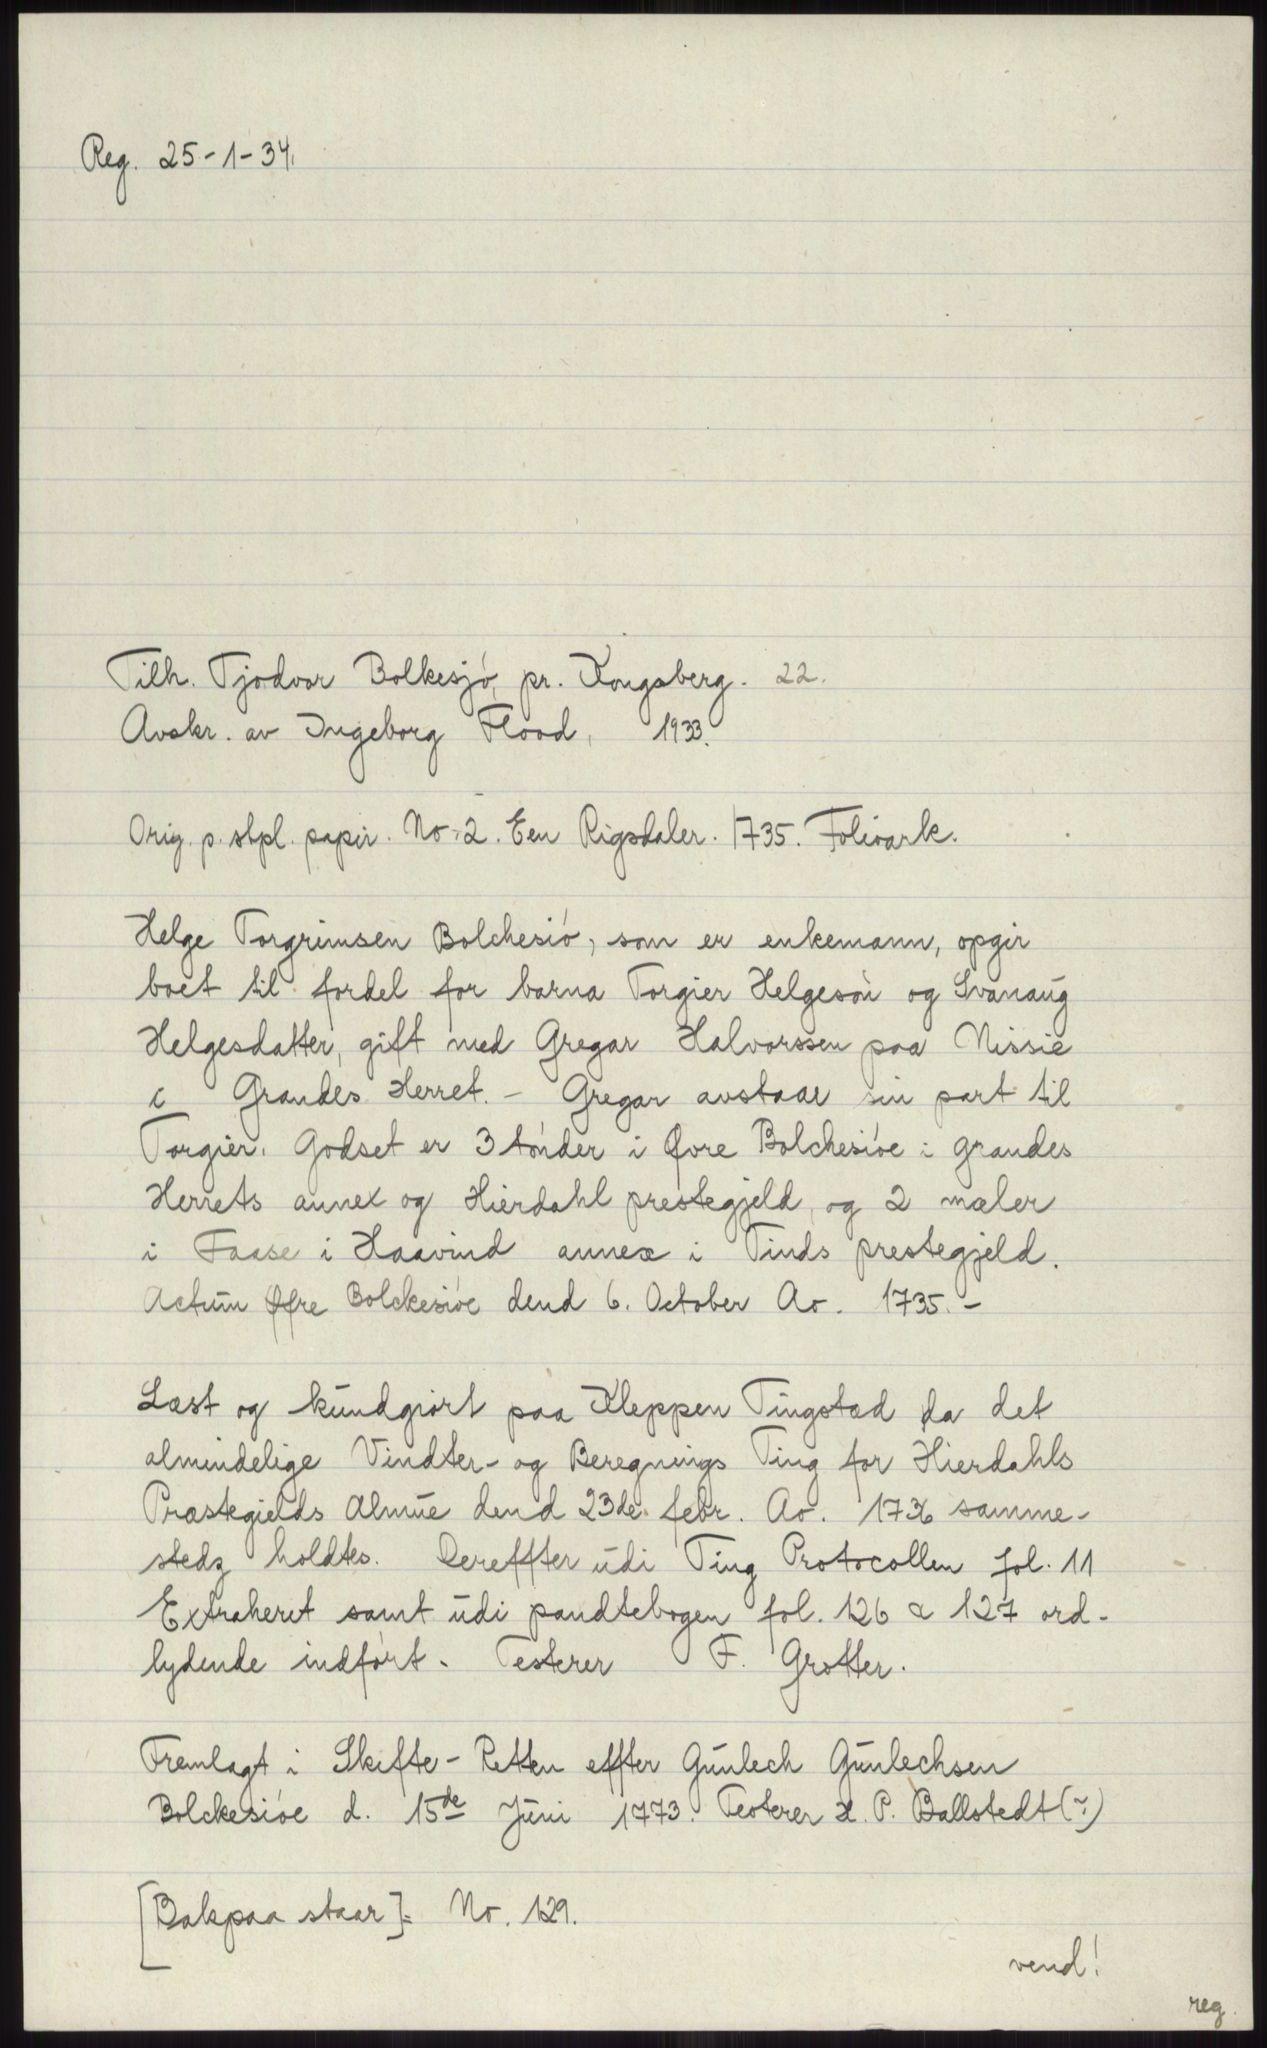 Reg. 25-1-34.
Tilh. Tjodvor Bolkesjó, pr. Kongsberg. 22.
Avskr. av Ingeborg Flood, 1933.
Orig. p. stpl. papir. No. 2. Een Rigsdaler. 1735. Folioark.
Helge Torgrimsen Bolchesió, som er enkemann, opgir
boet til fordel for barna Torgier Helgesön og Svanaug
Helgesdatter, gift med Gregar Halvorssen paa Nissie
i Grandes Herret. - Gregar avstaar sin part til
Torgier. Godset er 3 tónder i Øvre Bolchesióe i Grandes
Herrets annex og Hierdahl prestegjeld, og 2 mæler
i Faase i Haavind annex i Tinds prestegjeld.
Actum Øfre Bolckesióe dend 6. October Ao. 1735. -
Læst og kundgiórt paa Kleppen Tingstad da det
almindelige Vindter- og Beregnings Ting for Hierdahls
Præstegields Almue dend 23de febr. Ao. 1736 samme-
stedz holdtes. Dereffter udi Ting Protocollen fol. 11
Extraheret samt udi pandtebogen fol. 126 & 127 ord-
lydende indfórt. Testerer F. Grotter.
Fremlagt i Skifte-Retten effter Gunlech Gunlechsen
Bolckesióe d. 15de Juni 1773. Testerer H. P. Ballstedt (?)
[Bakpaa staar]: No. 129.
vend!
reg.